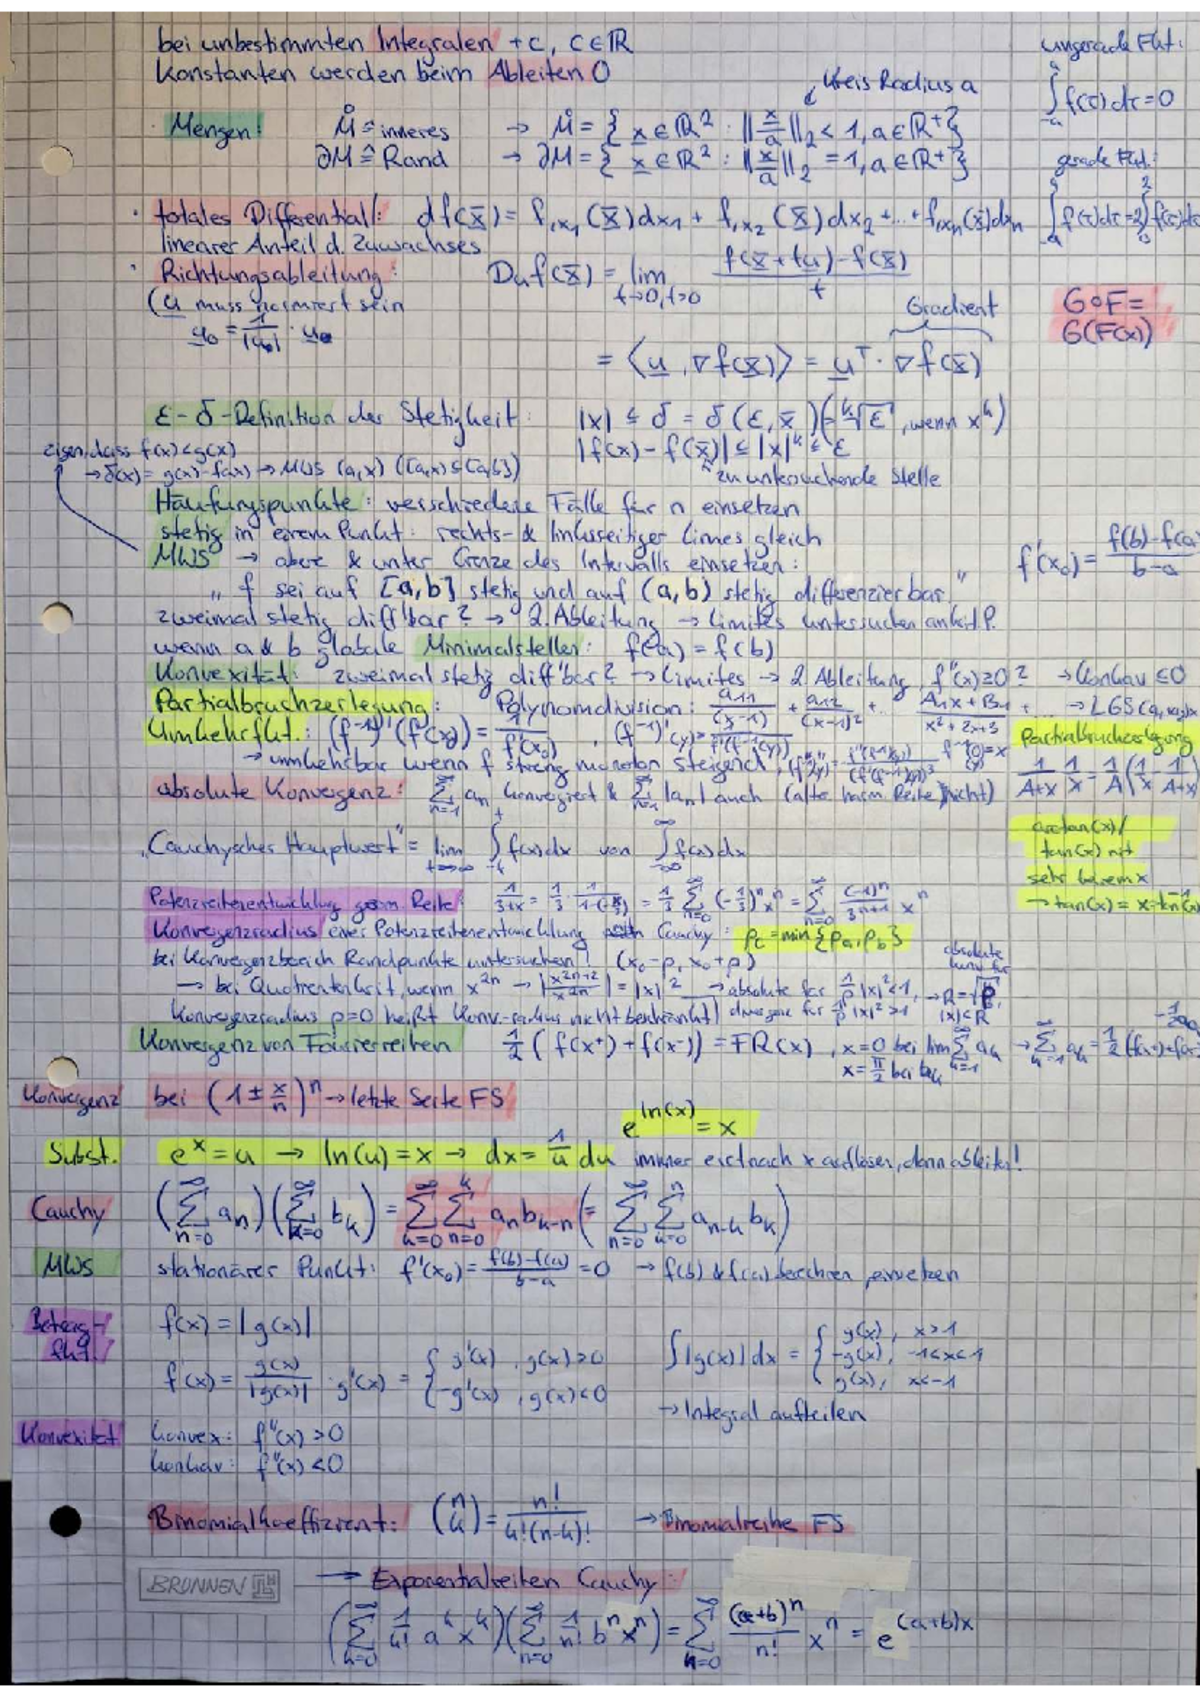 bei unbestimmten Integralen +c, c∈ℝ
Konstanten werden beim Ableiten 0
ungerade Fkt.:
∫_{-a}^{a} f(τ)dτ=0
Kreis Radius a
Mengen: M̊ ≙ inneres → M̊ = { x ∈ ℝ² : ||x/a||₂ < 1, a∈ℝ⁺}
∂M ≙ Rand → ∂M = { x ∈ ℝ² : ||x/a||₂ = 1, a∈ℝ⁺}
gerade Fkt.:
· totales Differential: df(x̄) = f,x₁(x̄)dx₁ + f,x₂(x̄)dx₂ +...+ f,xn(x̄)dxn
linearer Anteil d. Zuwachses
· Richtungsableitung: Duf(x̄) = lim_{t→0,t>0} (f(x̄+tu)-f(x̄))/t
(u muss normiert sein
Gradient
G∘F=
G(F(x))
= ⟨u, ∇f(x̄)⟩ = uᵀ · ∇f(x̄)
ε-δ-Definition der Stetigkeit: |x| ≤ δ = δ(ε,x̄) (= ᵏ√ε, wenn xᵏ)
|f(x)-f(x̄)| ≤ |x|ᵏ ≤ ε
zu untersuchende Stelle
zeigen, dass f(x)<g(x)
→ δ(x) = g(x)-f(x) → MWS (a,x) ([a,x]⊆[a,b])
Häufungspunkte: verschiedene Fälle für n einsetzen
stetig in einem Punkt: rechts- & linksseitiger Limes gleich
MWS → obere & untere Grenze des Intervalls einsetzen:
f'(x₀) = (f(b)-f(a))/(b-a)
„ f sei auf [a,b] stetig und auf (a,b) stetig differenzierbar"
zweimal stetig diff'bar? → 2. Ableitung → Limites untersuchen an krit. P.
wenn a & b globale Minimalstellen: f(a) = f(b)
Konvexität: zweimal stetig diff'bar? → Limites → 2. Ableitung f''(x)≥0? → konkav ≤0
Partialbruchzerlegung: Polynomdivision: a₁₁/(x-1) + a₁₂/(x-1)² + ... (A₁x+B₁)/(x²+2x+3) + ... → LGS
Umkehrfkt.: (f⁻¹)'(f(x₀)) = 1/f'(x₀), (f⁻¹)'(y) = 1/f'(f⁻¹(y))
→ umkehrbar wenn f streng monoton steigend
Partialbruchzerlegung
1/(A+x) · 1/x = 1/A (1/x - 1/(A+x))
absolute Konvergenz: Σ_{n=1}^{∞} an konvergiert & Σ_{n=1}^{∞} |an| auch (alte harm. Reihe nicht)
„Cauchyscher Hauptwert" = lim_{t→∞} ∫_{-t}^{t} f(x)dx von ∫_{-∞}^{∞} f(x)dx
arctan(x)/
tan(x) mit
→ tan(x) = x
Potenzreihenentwicklung geom. Reihe: 1/(3+x) = 1/3 · 1/(1-(-x/3)) = 1/3 Σ_{n=0}^{∞} (-1/3)ⁿxⁿ = Σ_{n=0}^{∞} (-1)ⁿ/3ⁿ⁺¹ xⁿ
Konvergenzradius einer Potenzreihenentwicklung nach Cauchy: ρc = min{ρa, ρb}
bei Konvergenzbereich Randpunkte untersuchen! (x₀-ρ, x₀+ρ)
→ bei Quotientenkrit., wenn x²ⁿ → |x²ⁿ⁺²/x²ⁿ| = |x|² → absolute für 1/ρ|x|²<1, divergenz für 1/ρ|x|²>1
→ R=√ρ, |x|<R
Konvergenzradius ρ=0 heißt Konv.-radius nicht beschränkt
Konvergenz von Fourierreihen 1/2 (f(x⁺)+f(x⁻)) = FR(x), x=0 bei lim Σ_{k=1}^{∞} ak
x=π/2 bei bk
Konvergenz bei (1±x/n)ⁿ → letzte Seite FS
e^{ln(x)} = x
Subst. eˣ=u → ln(u)=x → dx=1/u du immer erst nach x auflösen, dann ableiten!
Cauchy (Σ_{n=0}^{∞} an)(Σ_{k=0}^{∞} bk) = Σ_{k=0}^{∞} Σ_{n=0}^{k} an bk-n (= Σ_{n=0}^{∞} Σ_{k=0}^{n} an-k bk)
MWS stationärer Punkt: f'(x₀) = (f(b)-f(a))/(b-a) = 0 → f(b) & f(a) berechnen, einsetzen
Betrag-
fkt.
f(x) = |g(x)|
f'(x) = g(x)/|g(x)| · g'(x) = { g'(x), g(x)>0
-g'(x), g(x)<0
∫|g(x)|dx = { g(x), x>1
-g(x), -1<x<1
g(x), x<-1
→ Integral aufteilen
Konvexität konvex: f''(x)>0
konkav: f''(x)<0
Binomialkoeffizient: (n k) = n!/(k!(n-k)!) → Binomialreihe FS
BRUNNEN
→ Exponentialreihen Cauchy:
(Σ_{k=0}^{∞} 1/k! aᵏxᵏ)(Σ_{n=0}^{∞} 1/n! bⁿxⁿ) = Σ_{n=0}^{∞} (a+b)ⁿ/n! xⁿ = e^{(a+b)x}